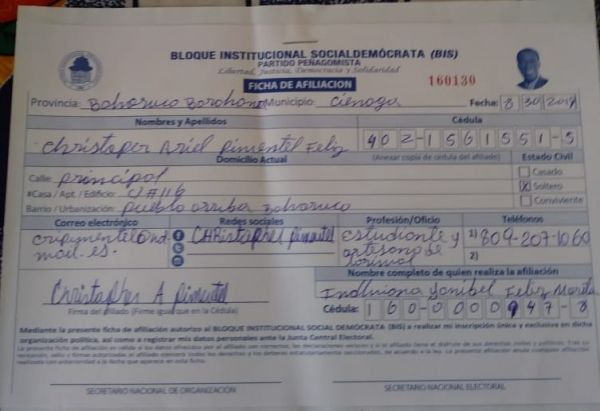 BLOQUE INSTITUCIONAL SOCIALDEMÓCRATA (BIS)
PARTIDO PEÑAGOMISTA
Libertad, Justicia, Democracia y Solidaridad
FICHA DE AFILIACION
160130
Provincia: Bahoruco Barahona Municipio: Cienaga Fecha: 8 30 2019
Nombres y Apellidos Cédula
Christaper Ariel Pimentel Feliz 402-1561551-5
Domicilio Actual (Anexar copia de cédula del afiliado) Estado Civil
Calle: principal Casado
#Casa / Apt. / Edificio: C/#116 X Soltero
Barrio / Urbanización: Pueblo arriba Bahoruco Conviviente
Correo electrónico Redes sociales Profesión/Oficio Teléfonos
crispimentel@hotmail.es. CHRistopher pimentel Estudiante y 1) 809-207-1060
artesano de 2)
larimar
Nombre completo de quien realiza la afiliación
Christapher A pimentel Yanibel Feliz
Firma del afiliado (Firme igual que en la Cédula) Cédula: 160-0000947-8
Mediante la presente ficha de afiliación autorizo al BLOQUE INSTITUCIONAL SOCIAL DEMÓCRATA (BIS) a realizar mi inscripción única y exclusiva en dicha
organización política, así como a registrar mis datos personales ante la Junta Central Electoral.
SECRETARIO NACIONAL DE ORGANIZACIÓN SECRETARIO NACIONAL ELECTORAL